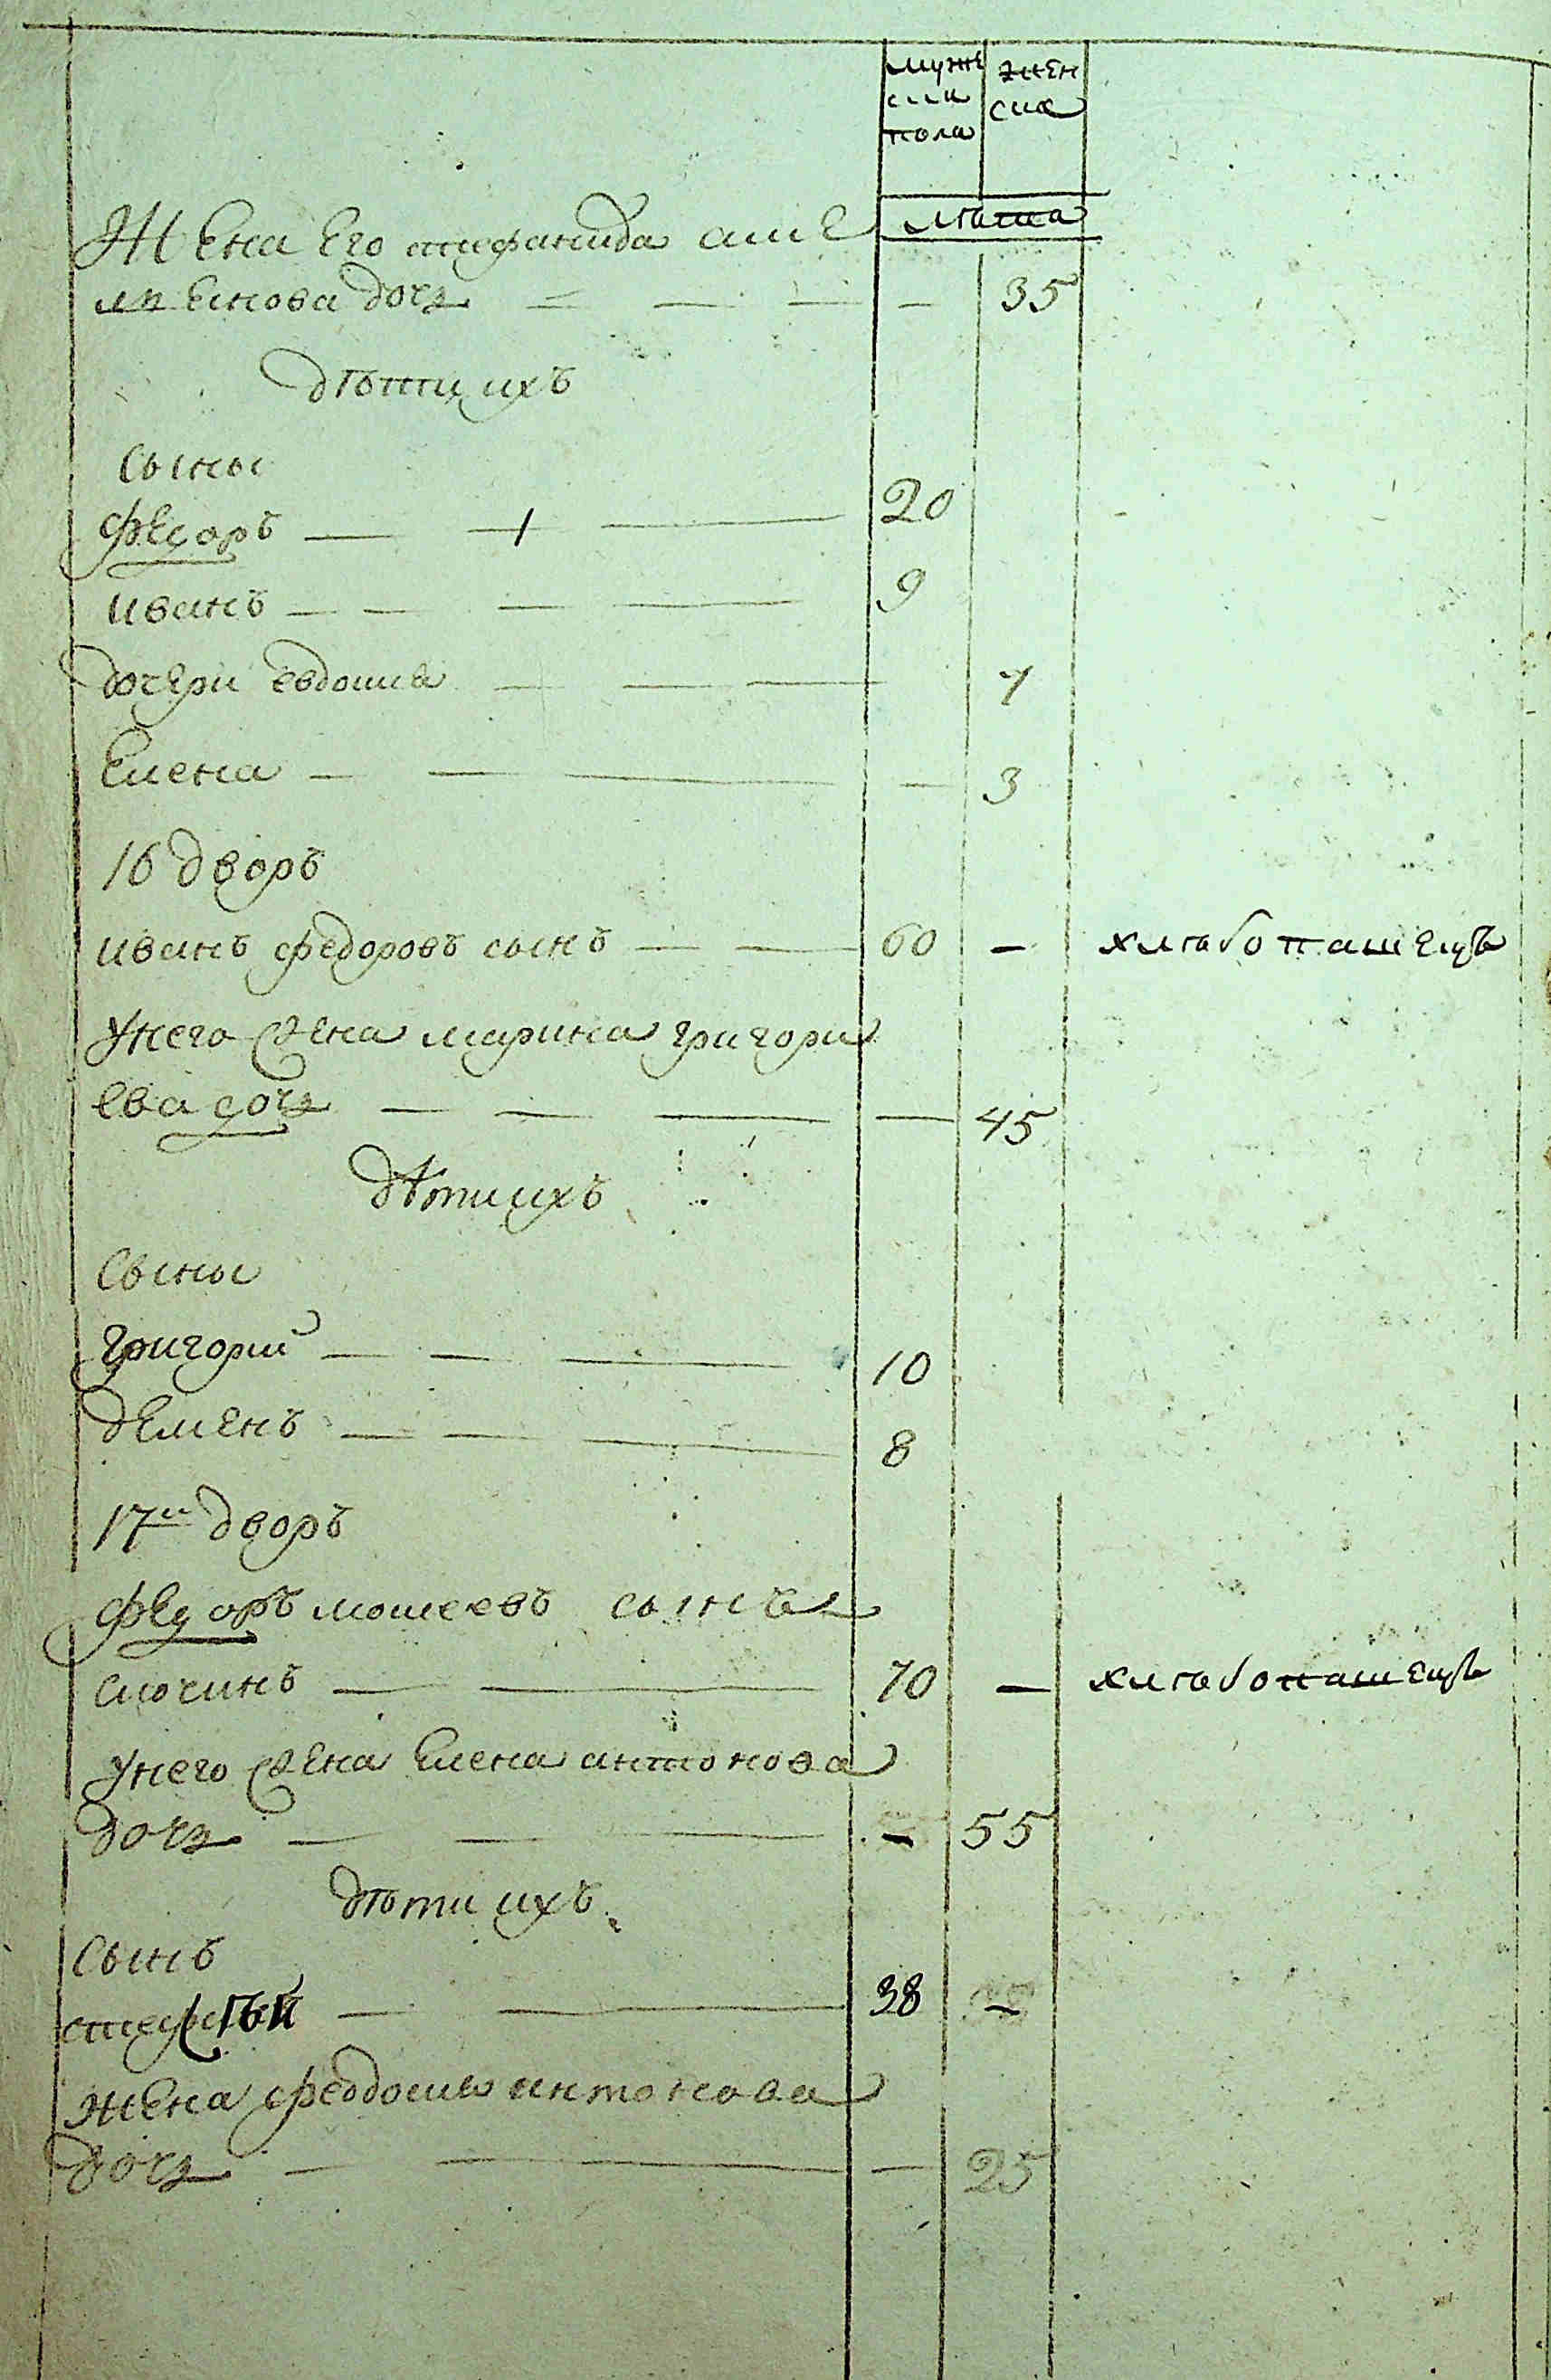 мужс женс
ска ска
пола
лѣта
Жена Его стефанида
дочь — — — — 35
дѣти ихъ
Сыны
Федоръ — — — 20
иванъ — — — — 9
дочери евдокиѣ — — — 7
Елена — — — — 3
16 дворъ
иванъ федоровъ сынъ — — 60 — хлѣбопашецъ
Унего жена марина григори
ева дочь — — — — 45
дѣти ихъ
Сыны
григории — — — 10
дЕменъ — — — 8
17и дворъ
федоръ мокеевъ сынъ
— — 70 — хлѣбопашецъ
Унего жена Елена антонова
дочь — — — — 55
дѣти ихъ
Сынъ
— — 38 —
жена феодосиѣ антонова
дочь — — — — 25